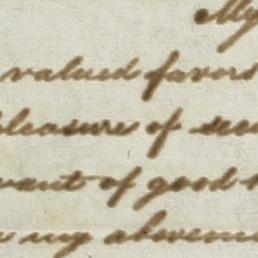 My
valued favors
pleasure of see
want of good
my absence